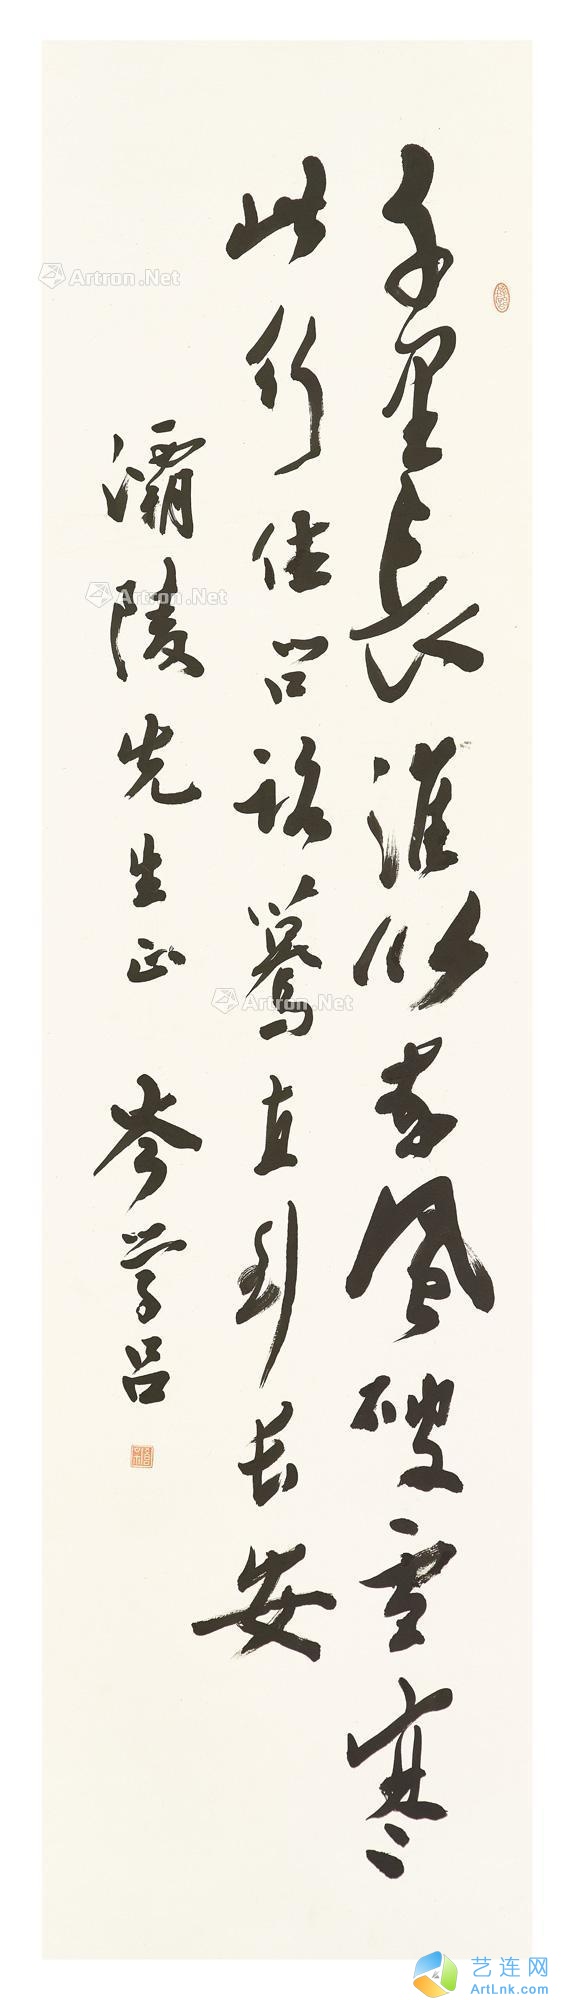 千里長淮東風破雪寒
此行佳路鶯直到長安
灞陵先生正 岑學呂
Artron.Net
Artron.Net
Artron.Net
艺连网
ArtLnk.com